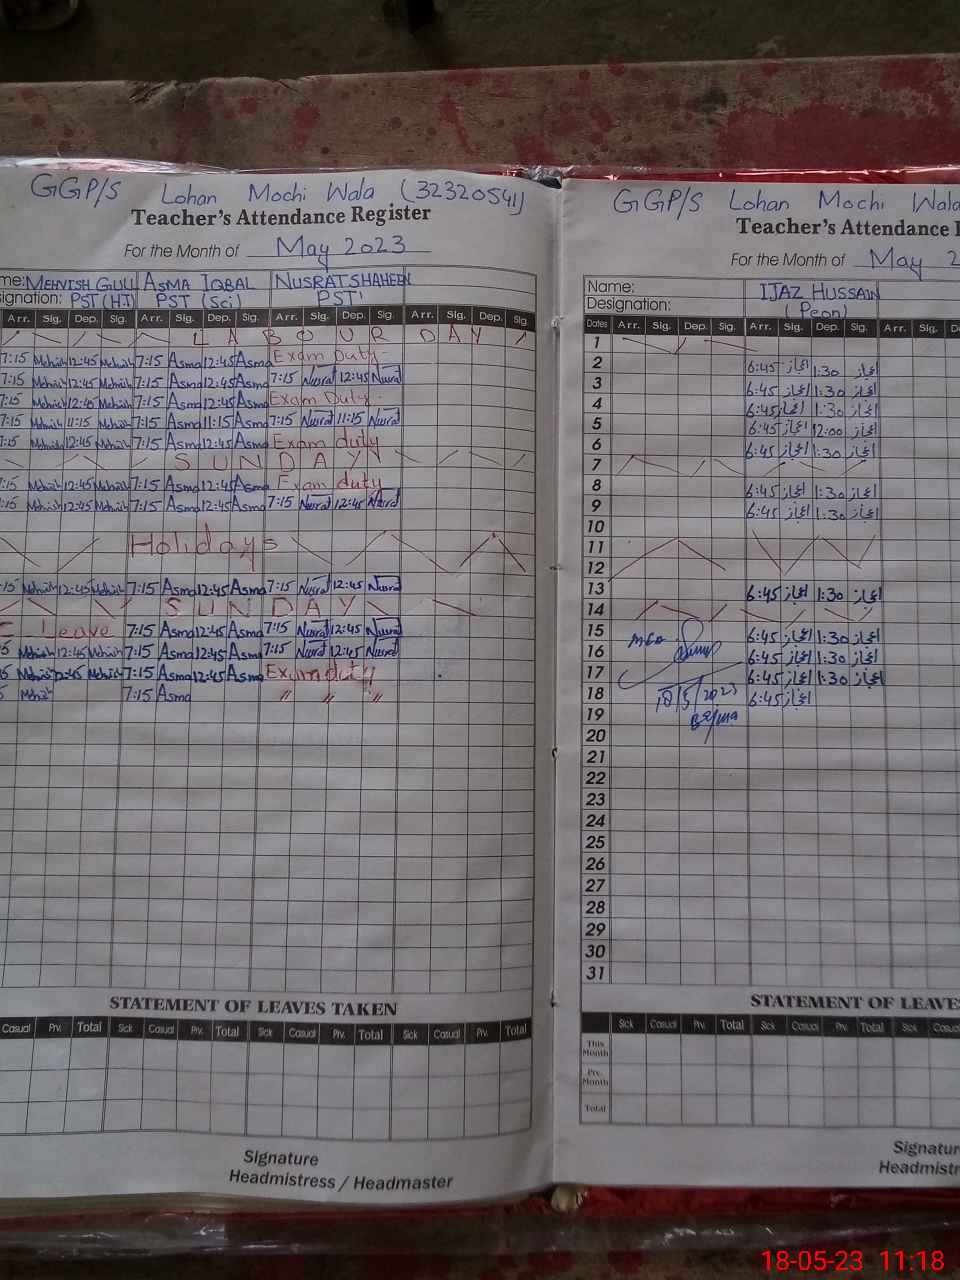 GGP/S Lohan Mochi Wala (32320541)
Teacher's Attendance Register
For the Month of May 2023
me: MEHVISH GULL ASMA IQBAL NUSRAT SHAHEEN
signation: PST (H.T) PST (Sci) PST
Arr. Sig. Dep. Sig. Arr. Sig. Dep. Sig. Arr. Sig. Dep. Sig. Arr. Sig. Dep. Sig.
LABOUR DAY
7:15 Mehvish 12:45 Mehvish 7:15 Asma 12:45 Asma Exam Duty
7:15 Mehvish 12:45 Mehvish 7:15 Asma 12:45 Asma 7:15 Nusrat 12:45 Nusrat
7:15 Mehvish 12:45 Mehvish 7:15 Asma 12:45 Asma Exam Duty
7:15 Mehvish 11:15 Mehvish 7:15 Asma 11:15 Asma 7:15 Nusrat 11:15 Nusrat
7:15 Mehvish 12:45 Mehvish 7:15 Asma 12:45 Asma Exam duty
SUNDAY
7:15 Mehvish 12:45 Mehvish 7:15 Asma 12:45 Asma Exam duty
:15 Mehvish 12:45 Mehvish 7:15 Asma 12:45 Asma 7:15 Nusrat 12:45 Nusrat
Holidays
:15 Mehvish 12:45 Mehvish 7:15 Asma 12:45 Asma 7:15 Nusrat 12:45 Nusrat
SUNDAY
C Leave 7:15 Asma 12:45 Asma 7:15 Nusrat 12:45 Nusrat
5 Mehvish 12:45 Mehvish 7:15 Asma 12:45 Asma 7:15 Nusrat 12:45 Nusrat
5 Mehvish 12:45 Mehvish 7:15 Asma 12:45 Asma Exam duty
5 Mehvish 7:15 Asma " " "
STATEMENT OF LEAVES TAKEN
Casual Prv. Total Sick Casual Prv. Total Sick Casual Prv. Total Sick Casual Prv. Total
Signature
Headmistress / Headmaster
GGP/S Lohan Mochi Wala
Teacher's Attendance
For the Month of May 2
Name: IJAZ HUSSAIN
Designation: (Peon)
Dates Arr. Sig. Dep. Sig. Arr. Sig. Dep. Sig. Arr. Sig.
1
2 6:45 اعجاز 1:30 اعجاز
3 6:45 اعجاز 1:30 اعجاز
4 6:45 اعجاز 1:30 اعجاز
5 6:45 اعجاز 12:00 اعجاز
6 6:45 اعجاز 1:30 اعجاز
7
8 6:45 اعجاز 1:30 اعجاز
9 6:45 اعجاز 1:30 اعجاز
10
11
12
13 6:45 اعجاز 1:30 اعجاز
14
15 6:45 اعجاز 1:30 اعجاز
16 6:45 اعجاز 1:30 اعجاز
17 6:45 اعجاز 1:30 اعجاز
18 18/5/2023 6:45 اعجاز
19
20
21
22
23
24
25
26
27
28
29
30
31
STATEMENT OF LEAVES
Sick Casual Prv. Total Sick Casual Prv. Total Sick Casual
This Month
Pre. Month
Total
Signature
Headmistr
18-05-23 11:18